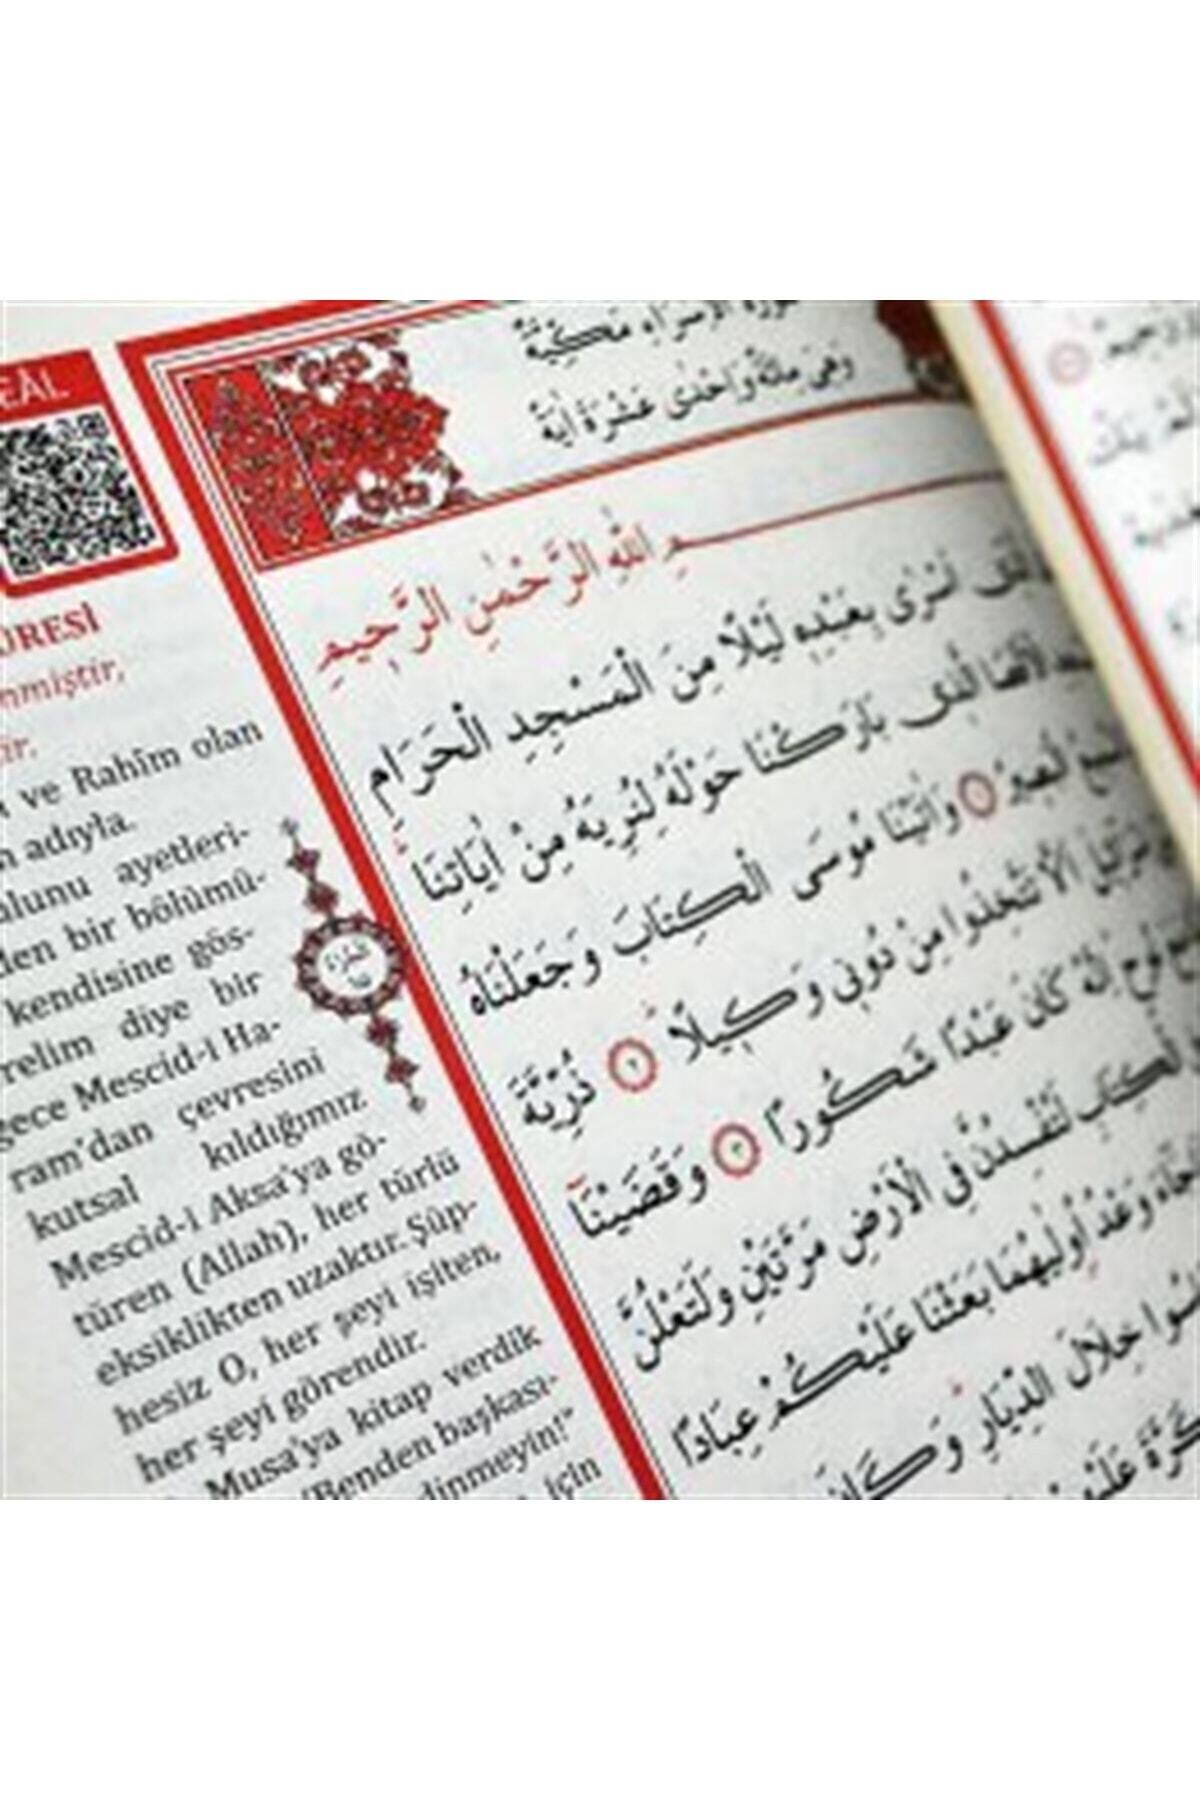 EÂL
ÛRESİ
nmiştir,
ve Rahîm olan
adıyla.
ulunu ayetleri-
den bir bölümü-
kendisine gös-
relim diye bir
gece Mescid-i Ha-
ram'dan çevresini
kutsal kıldığımız
Mescid-i Aksa'ya gö-
türen (Allah), her türlü
eksiklikten uzaktır. Şüp-
hesiz O, her şeyi işiten,
her şeyi görendir.
Musa'ya kitap verdik
"Benden başkası-
dinmeyin!"
için
سُورَةُ الْاِسْرَاءِ مَكِّيَّةٌ
وَهِيَ مِائَةٌ وَاِحْدٰى عَشْرَةَ اٰيَةً
ـمِ اللّٰهِ الرَّحْمٰنِ الرَّحِيمِ
اَسْرٰى بِعَبْدِهِ لَيْلًا مِنَ الْمَسْجِدِ الْحَرَامِ
الْاَقْصَا الَّذِى بَارَكْنَا حَوْلَهُ لِنُرِيَهُ مِنْ اٰيَاتِنَاۜ
الْبَصِيرُ ١ وَاٰتَيْنَا مُوسَى الْكِتَابَ وَجَعَلْنَاهُ
اَلَّا تَتَّخِذُوا مِنْ دُونِى وَكِيلًاۜ ٢ ذُرِّيَّةَ
نُوحٍ اِنَّهُ كَانَ عَبْدًا شَكُورًا ٣ وَقَضَيْنَٓا
الْكِتَابِ لَتُفْسِدُنَّ فِى الْاَرْضِ مَرَّتَيْنِ وَلَتَعْلُنَّ
جَٓاءَ وَعْدُ اُولٰيهُمَا بَعَثْنَا عَلَيْكُمْ عِبَادًا
خِلَالَ الدِّيَارِۜ وَكَانَ
عَلَيْهِمْ